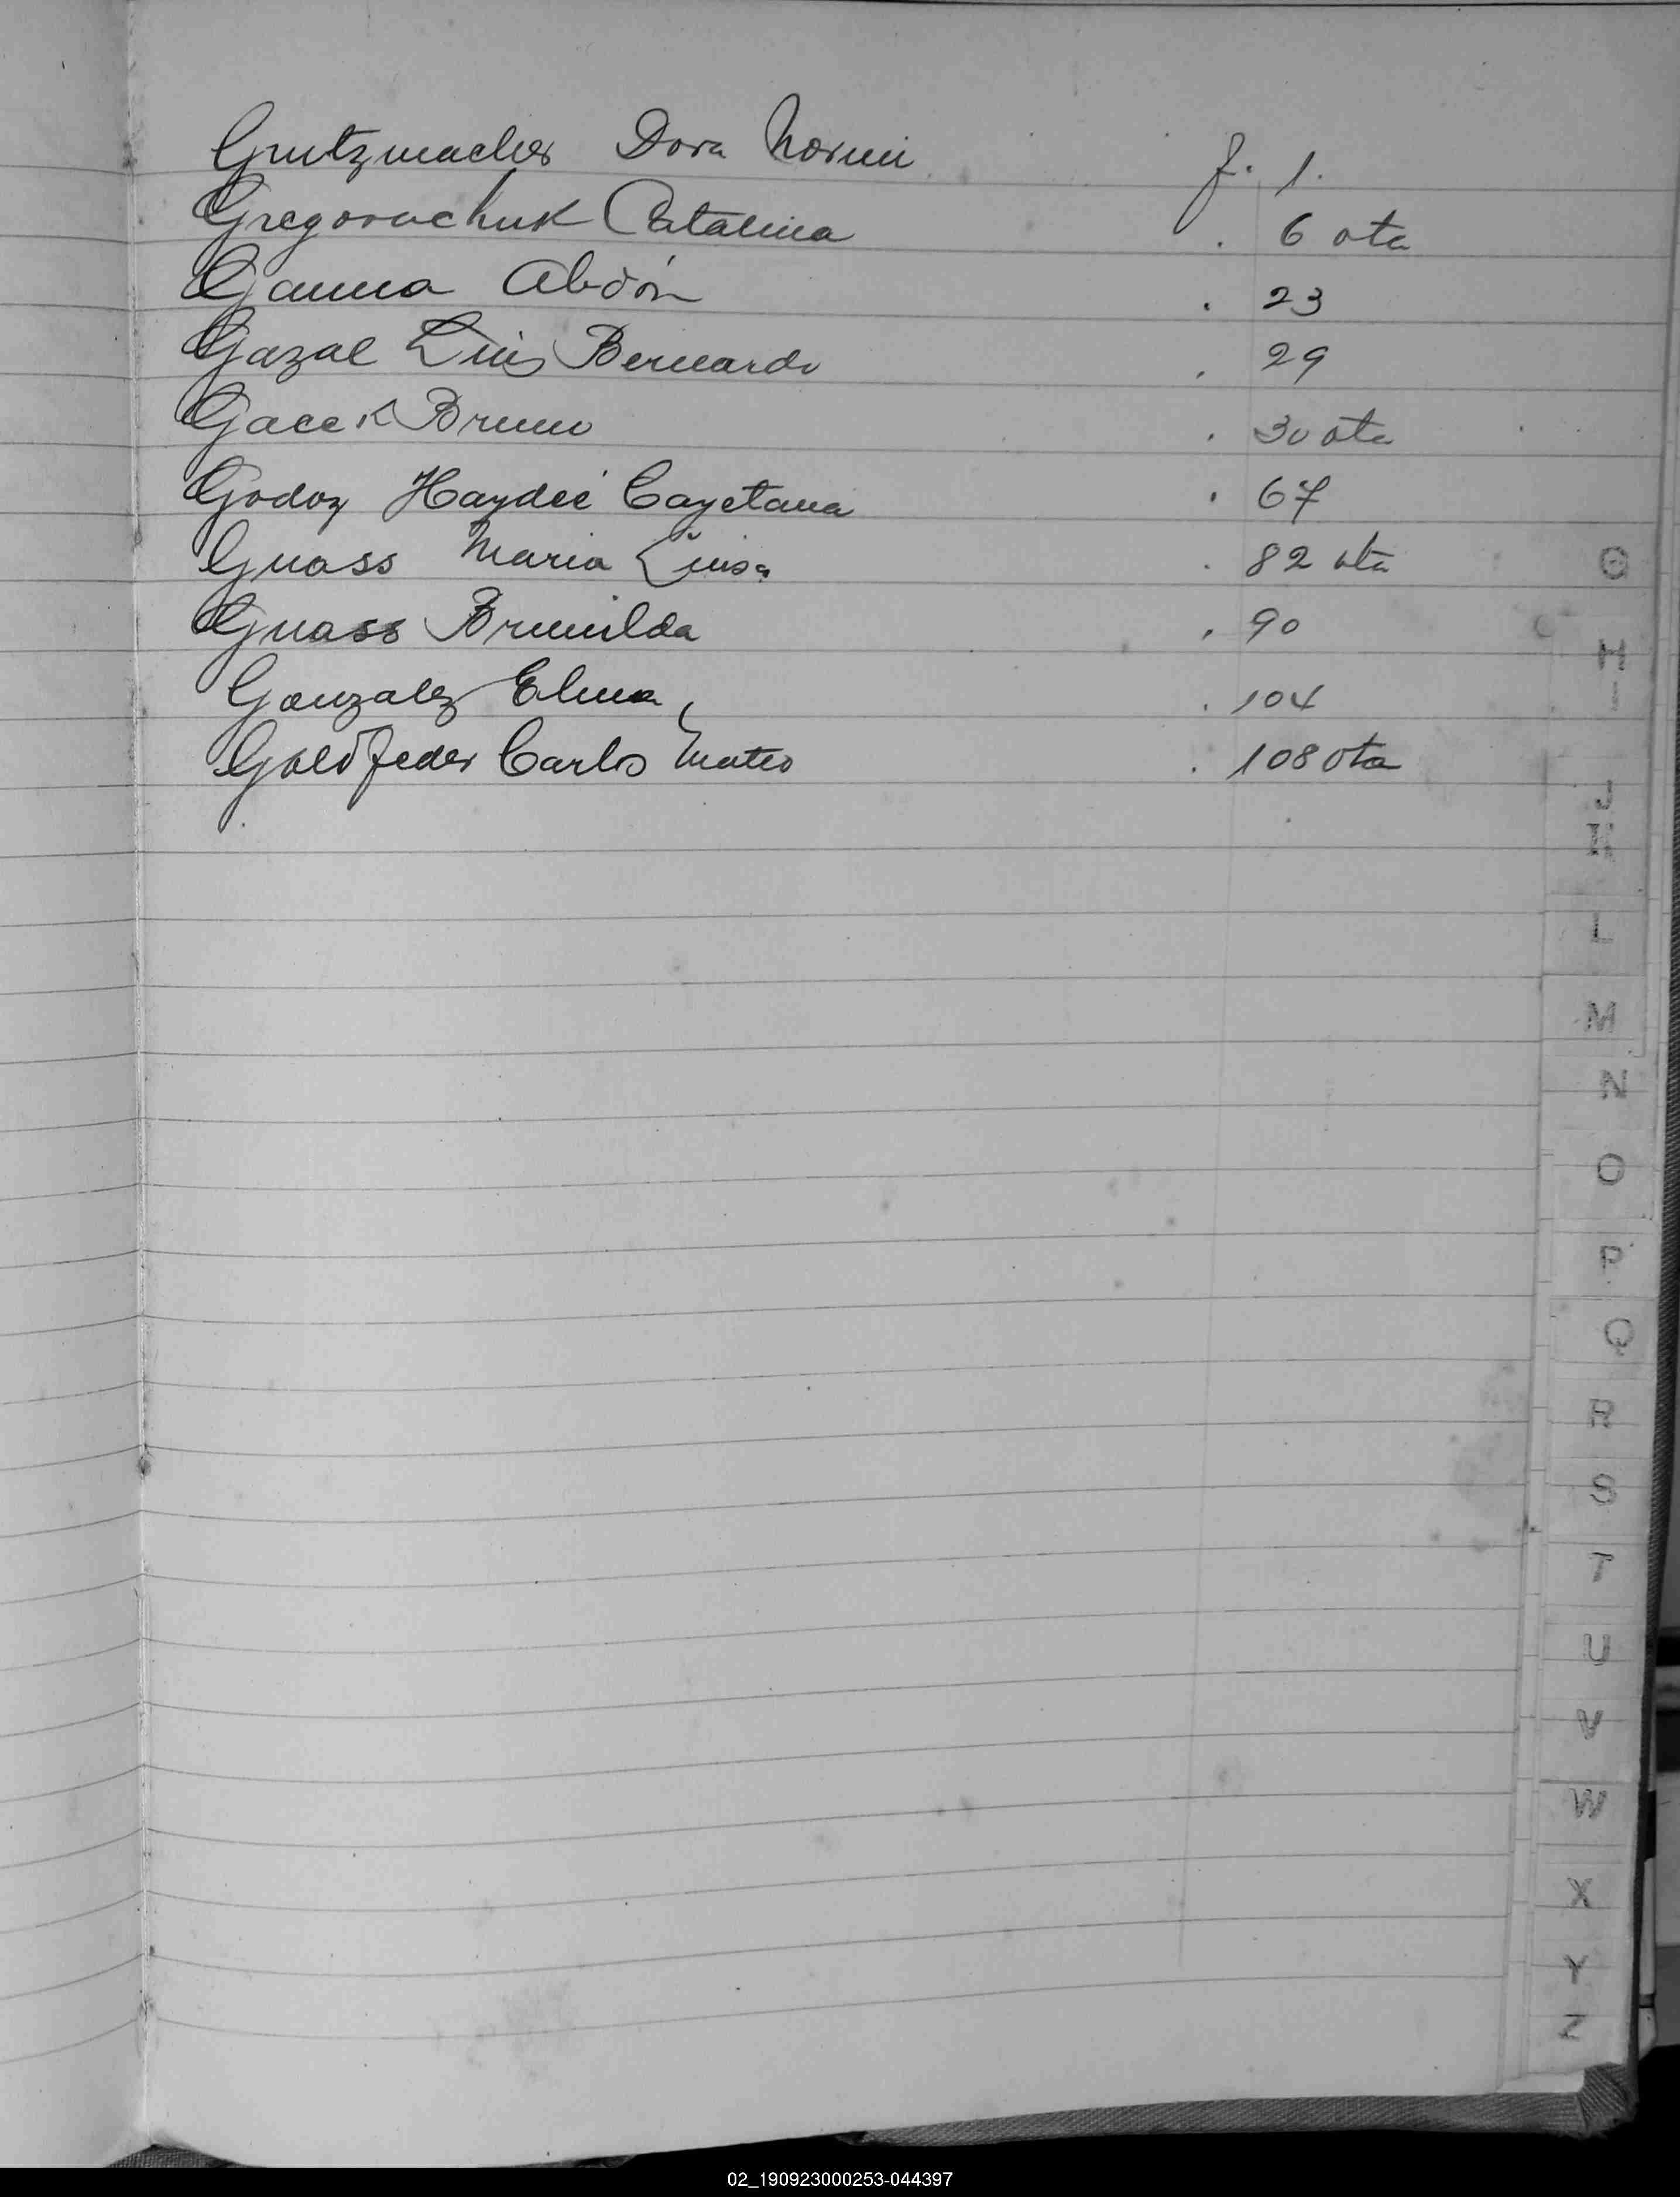 Grutzmacher Dora Noemi f. 1.
Gregoruchuk Catalina . 6 vta
Gauna Abdón . 23
Gazal Luis Bernardo . 29
Gacek Bruno . 30 vta
Godoy Haydeé Cayetana . 67
Guass Maria Luisa . 82 vta
Guass Brunilda . 90
Gonzalez Elma . 104
Goldfeder Carlos Mateo . 108 vta
G
H
I
J
K
L
M
N
O
P
Q
R
S
T
U
V
W
X
Y
Z
02_190923000253-044397